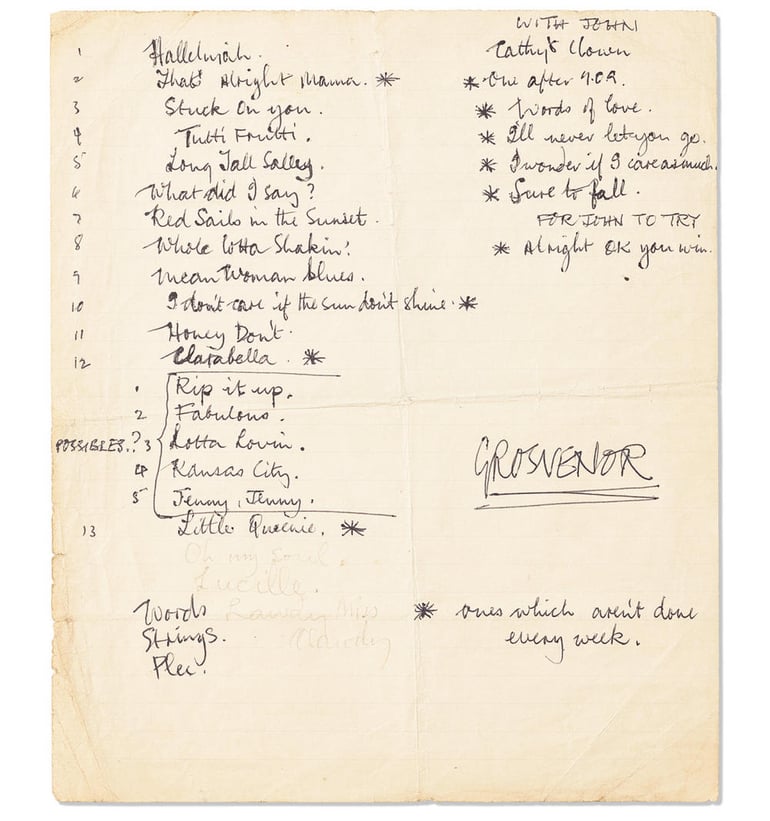 1 Hallelujah.
2 That's Alright Mama. *
3 Stuck On you.
4 Tutti Frutti.
5 Long Tall Salley.
6 What did I say?
7 Red Sails in the Sunset.
8 Whole lotta Shakin'.
9 Mean Woman blues.
10 I don't care if the sun don't shine. *
11 Honey Don't.
12 Clarabella. *
POSSIBLES.?
1 Rip it up.
2 Fabulous.
3 Lotta Lovin.
4 Kansas City.
5 Jenny, Jenny.
13 Little Queenie. *
Oh my soul.
Lucille.
Lawdy Miss
Clawdy
Words
Strings.
Plec.
WITH JOHN
Cathy's Clown
* One after 9.09.
* Words of love.
* I'll never let you go.
* I wonder if I care as much.
* Sure to fall.
FOR JOHN TO TRY
* Alright OK you win.
GROSVENOR
* ones which aren't done
every week.